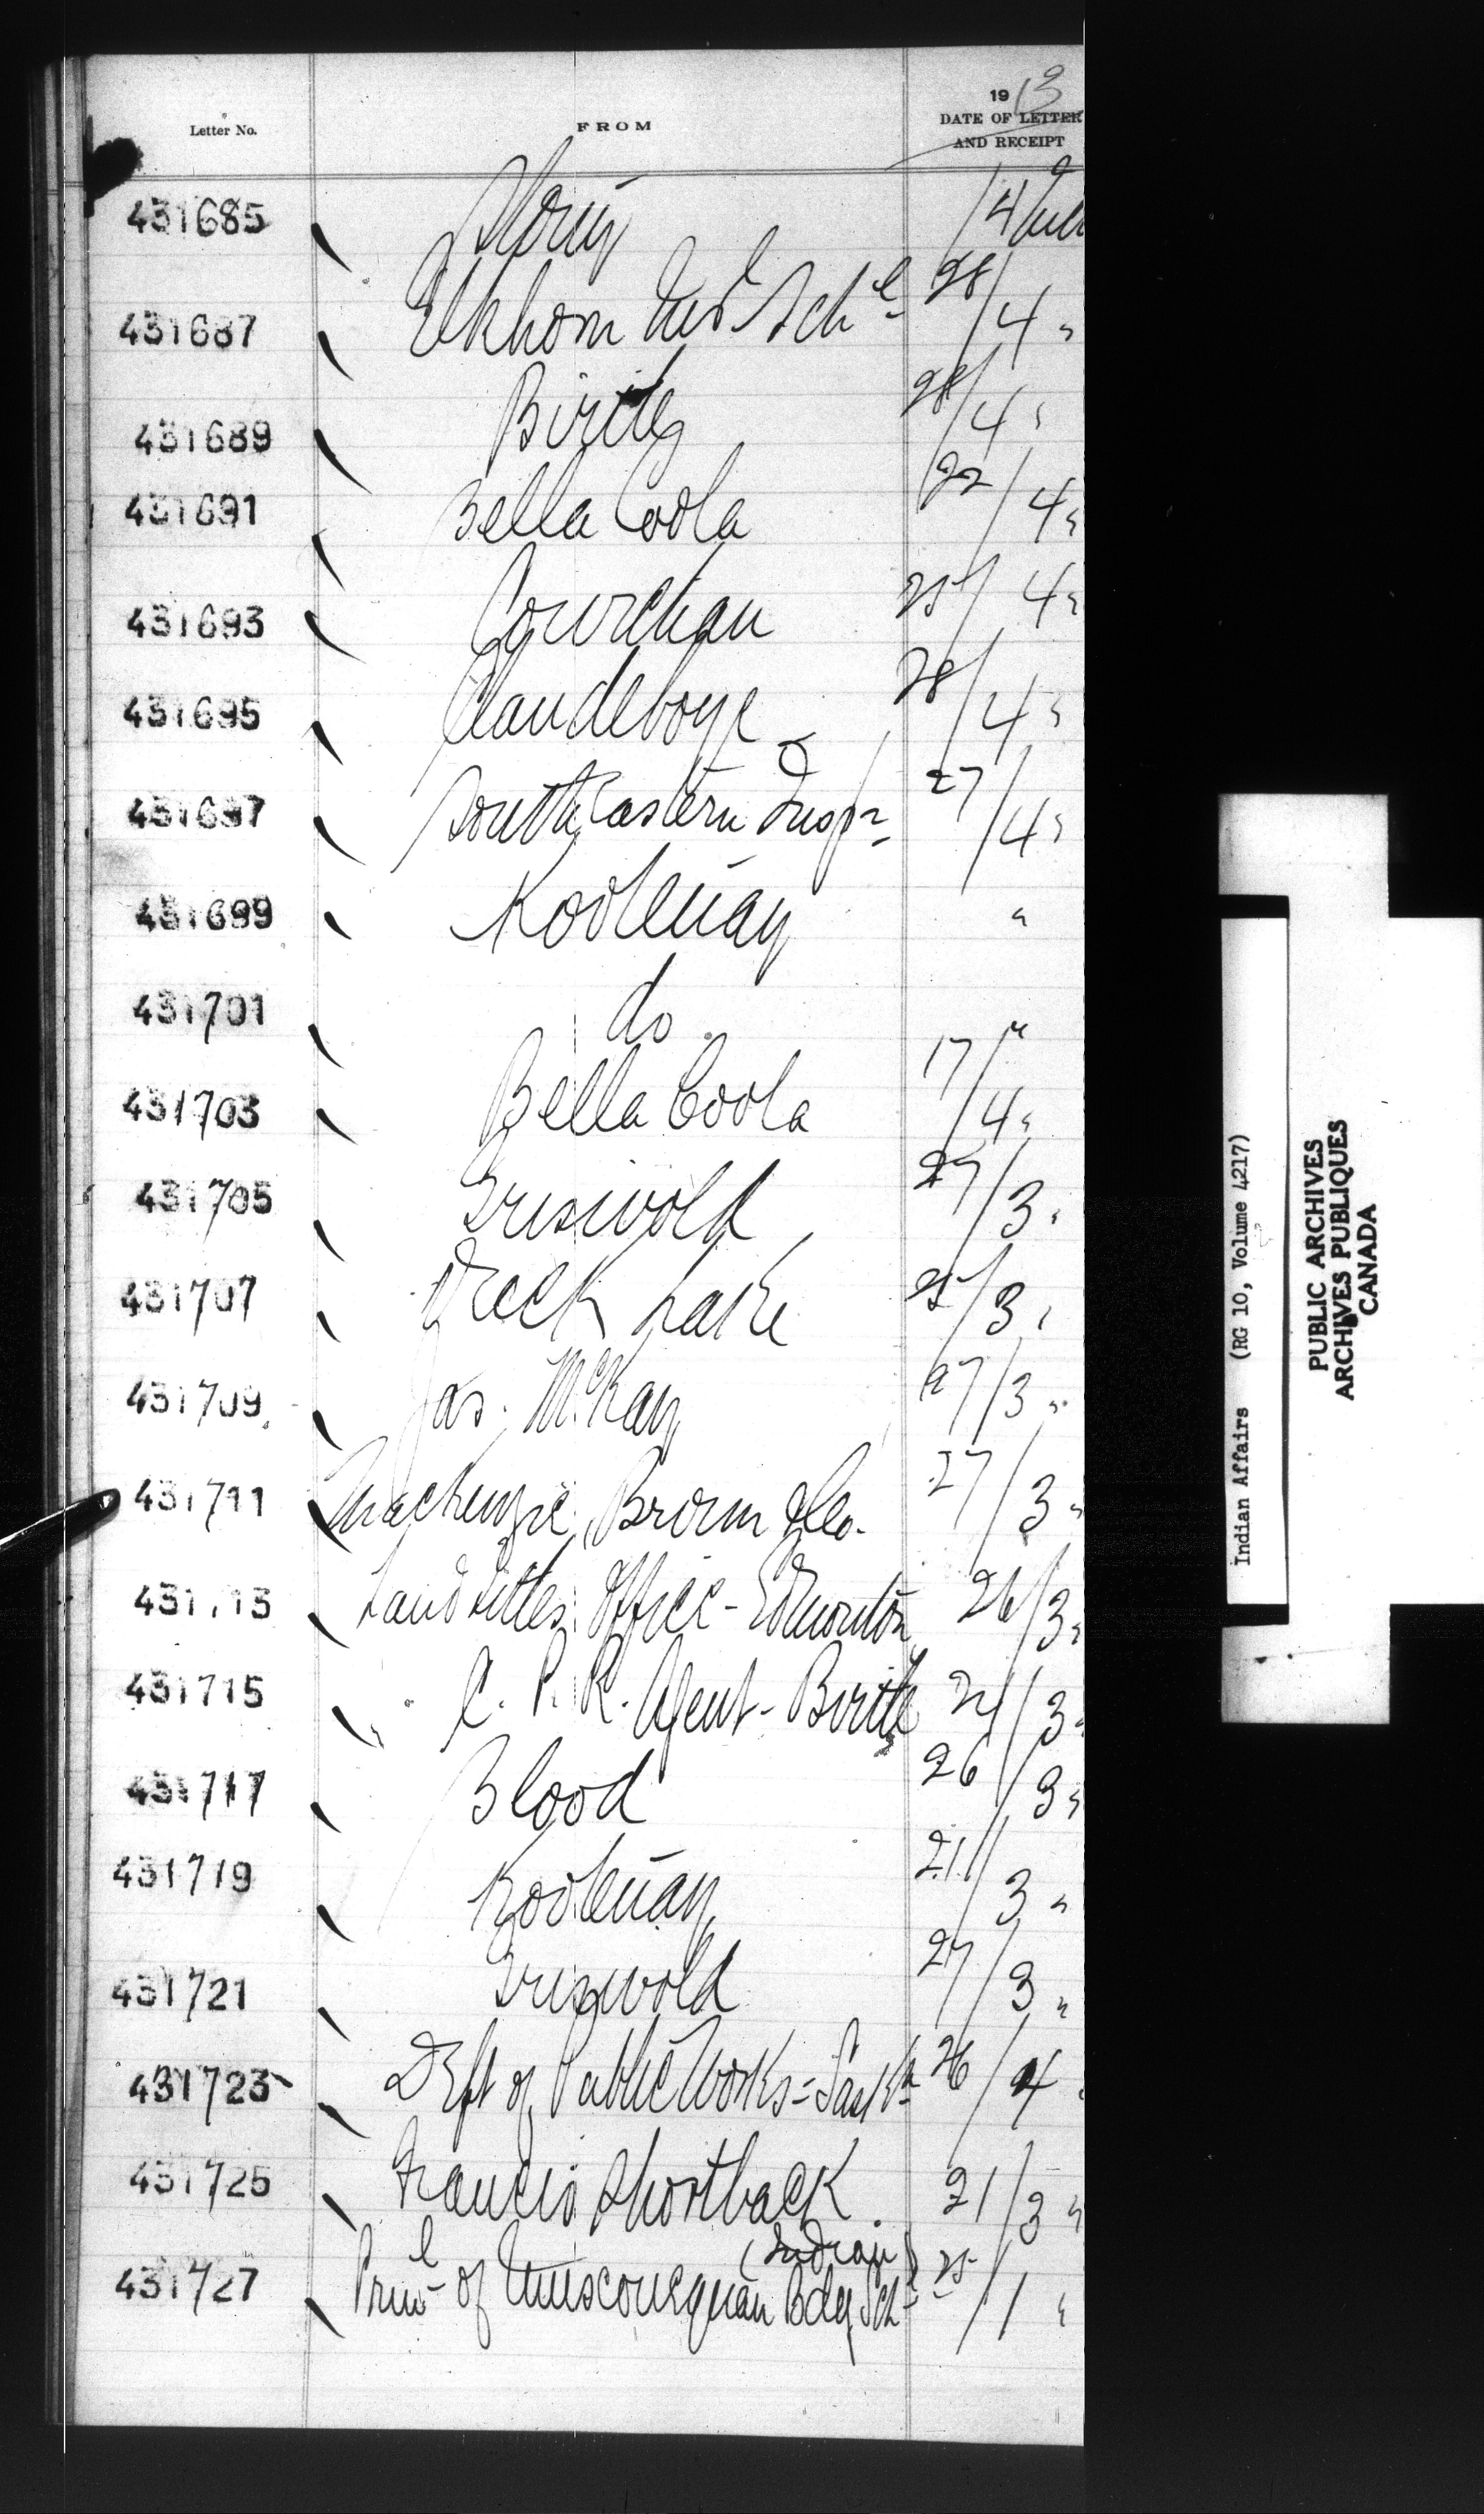 Letter No. FROM 1913 DATE OF LETTER AND RECEIPT
431685 Morley
431687 Elkhorn Ind^l Sch^l 28/4 "
431689 Birtle 28/4 "
431691 Bella Coola 22/4 "
431693 Cowichan 25/4 "
431695 Clandeboye 28/4 "
431697 South Eastern Insp^r 27/4 "
431699 Kootenay "
431701 do "
431703 Bella Coola 17/4 "
431705 Griswold 27/3 "
431707 Duck Lake 25/3 "
431709 Jas. McKay 27/3 "
431711 Mackenzie, Brown & Co. 27/3 "
431713 Land Titles Office - Edmonton 26/3 "
431715 C. P. R. Agent - Birtle /3 "
431717 Blood 26/3 "
431719 Kootenay 21/3 "
431721 Griswold 27/3 "
431723 Dept of Public Works - Sask^n 26/4
431725 Francis Shortback 21/3 "
(Indian)
431727 Prin^l of Muscowequan Bdg Sch^l 25/1 "
Indian Affairs (RG 10, Volume 4217)
PUBLIC ARCHIVES
ARCHIVES PUBLIQUES
CANADA